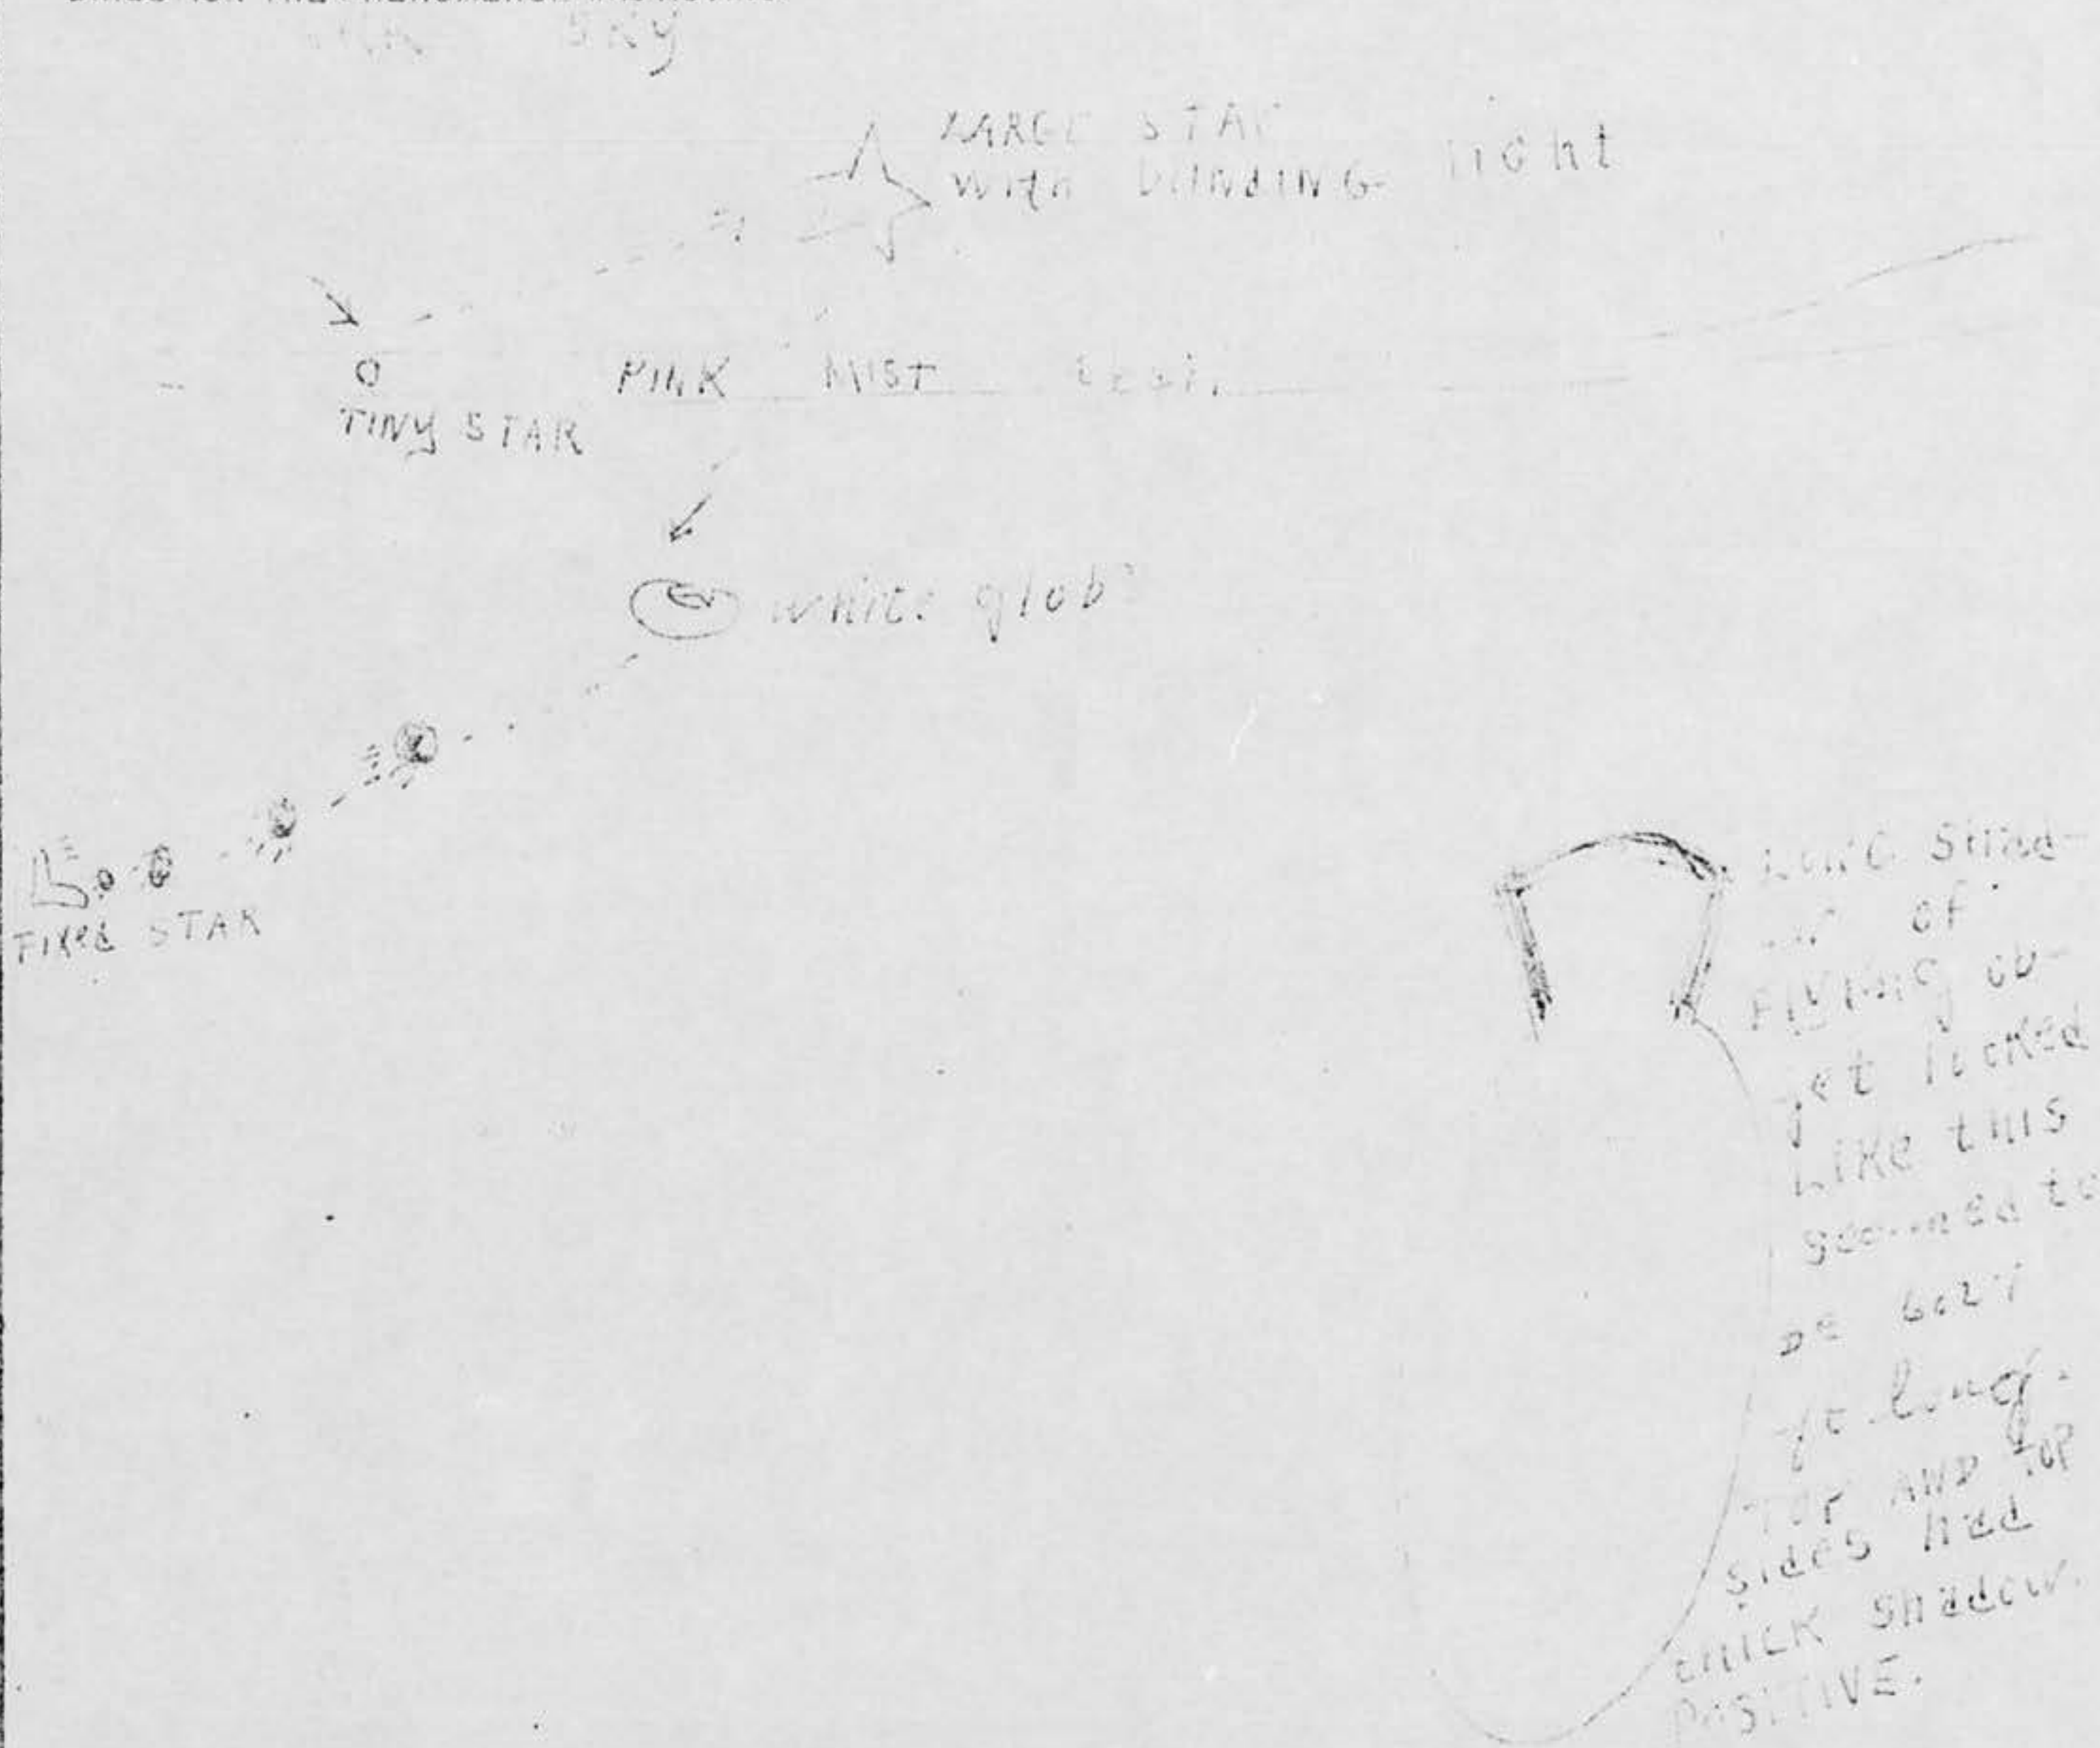 SKY
LARGE STAR
with blinding light
TINY STAR
PINK MIST
white globe
Fixed STAR
LONG Shad-
of
Flying ob-
ject looked
Like this
seemed to
be
ft. long.
TOP AND TOP
sides had
thick shadow.
POSITIVE.